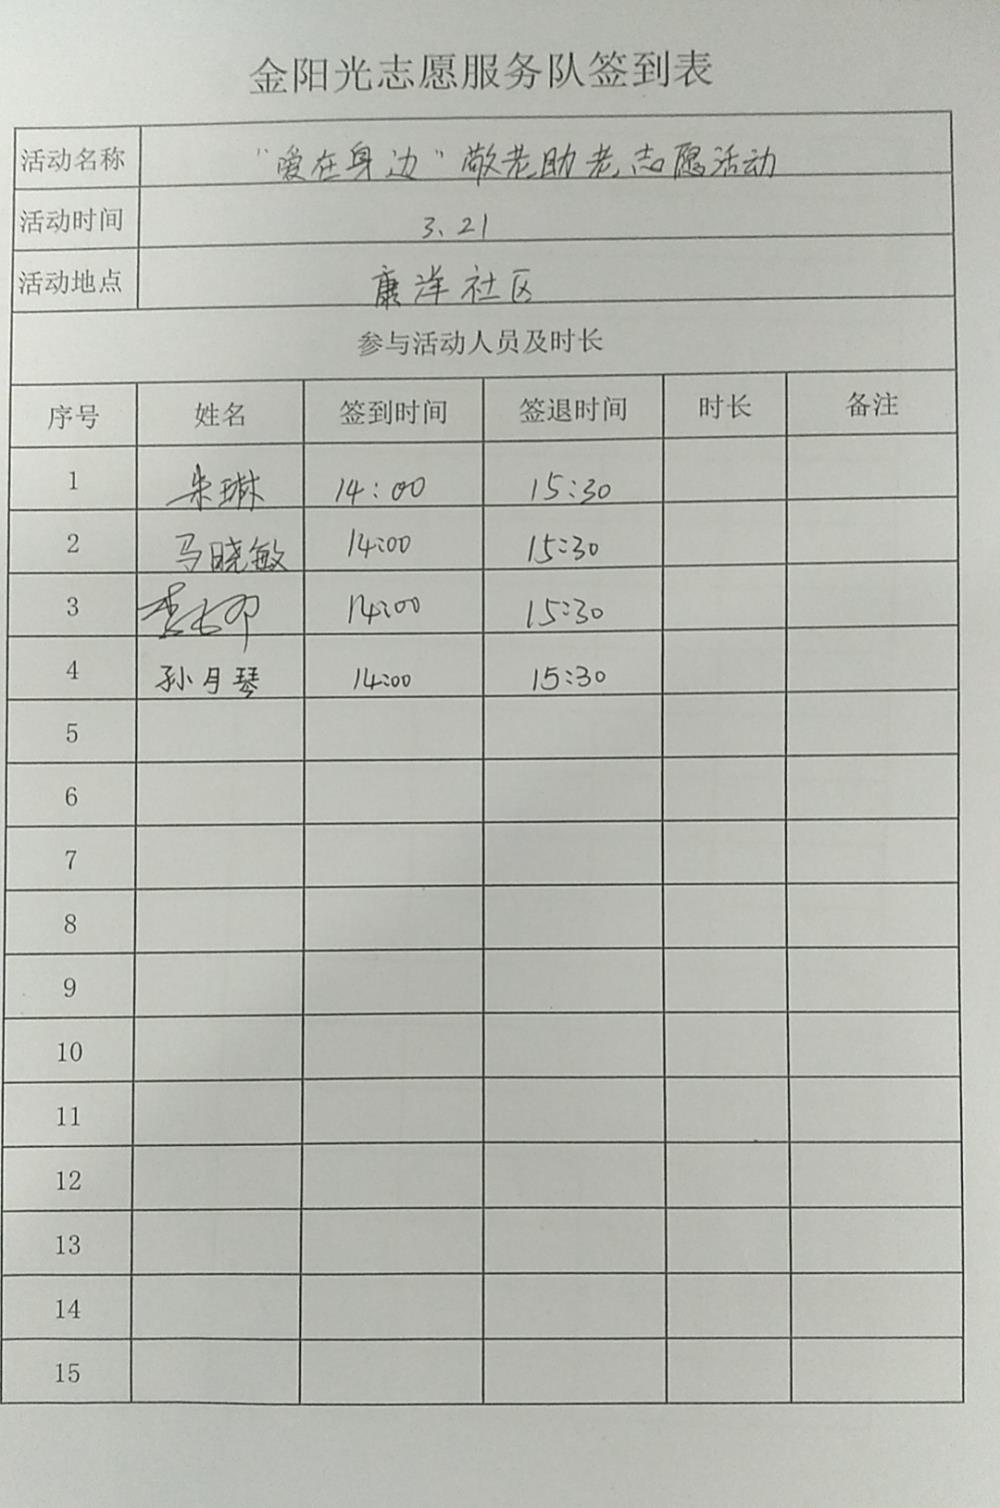 金阳光志愿服务队签到表
活动名称 "爱在身边"敬老助老志愿活动
活动时间 3.21
活动地点 康洋社区
参与活动人员及时长
序号 姓名 签到时间 签退时间 时长 备注
1 朱琳 14:00 15:30
2 马晓敏 14:00 15:30
3 14:00 15:30
4 孙月琴 14:00 15:30
5
6
7
8
9
10
11
12
13
14
15